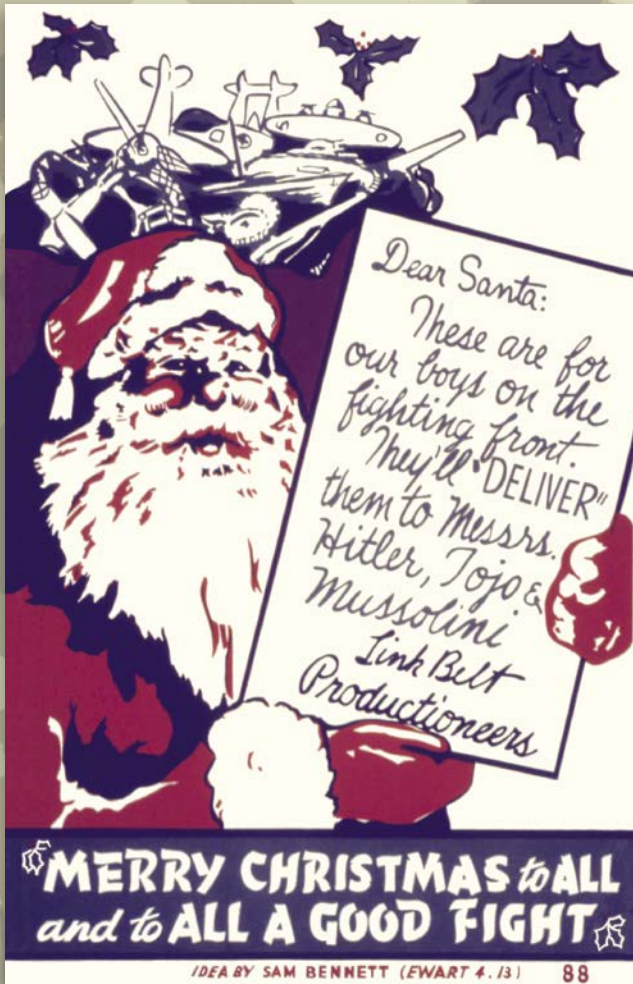 Dear Santa:
These are for
our boys on the
fighting front.
They'll "DELIVER"
them to Messrs.
Hitler, Tojo &
Mussolini
Link Belt
Productioneers
"MERRY CHRISTMAS to ALL
and to ALL A GOOD FIGHT"
IDEA BY SAM BENNETT (EWART 4.13) 88